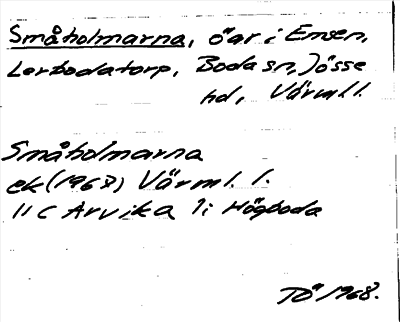 Småholmarna, öar i Emsen,
Lerbodatorp, Boda sn, Jösse
hd, Värml.
Småholmarna
ek (1968) Värml. l.
11 C Arvika 1i Högboda
TÖ 1968.